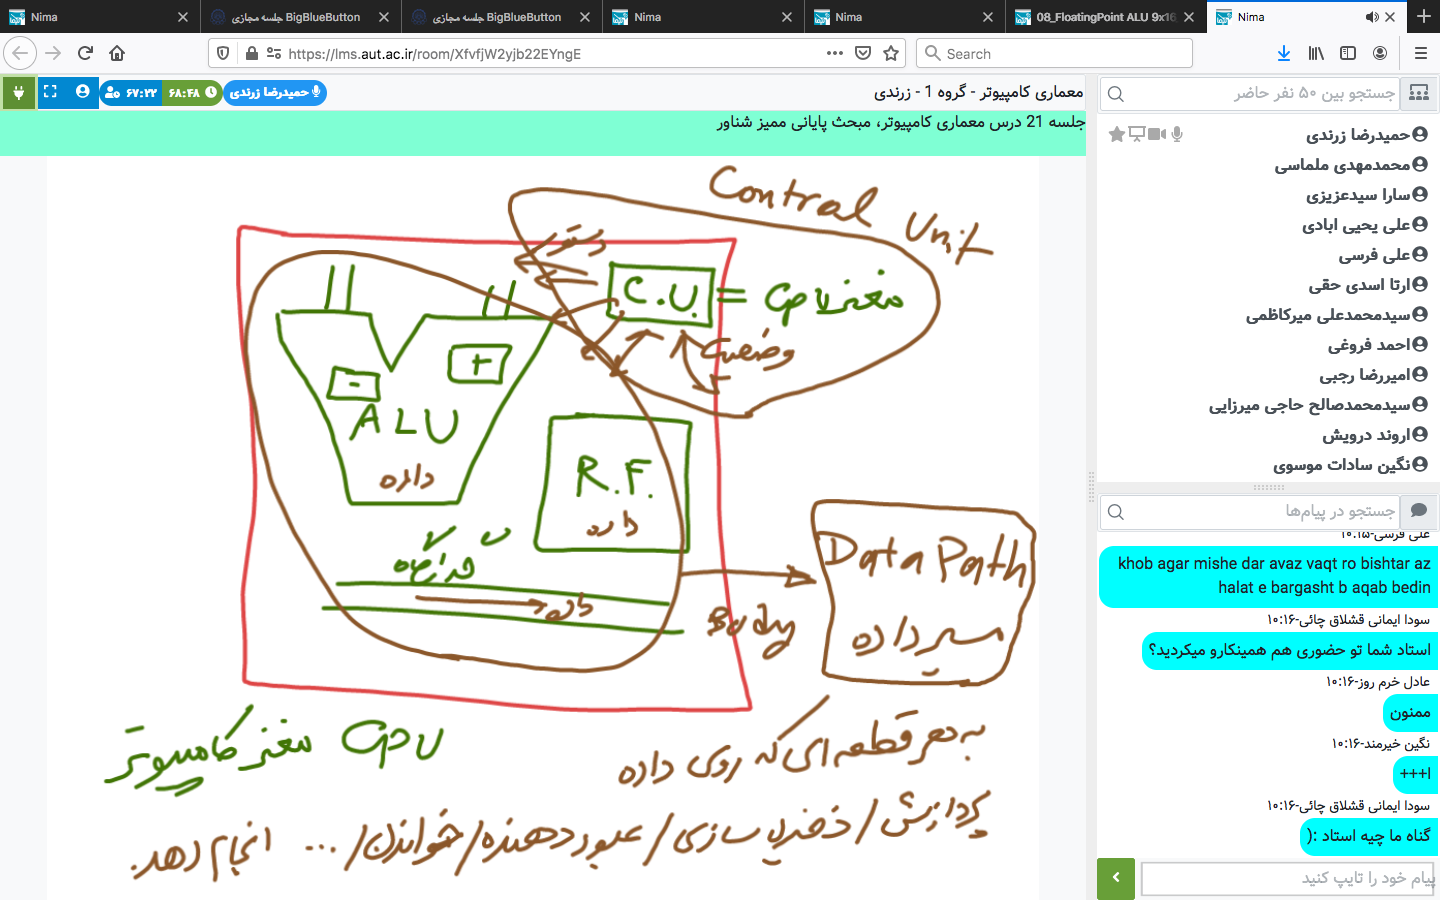 Nima
جلسه مجازی BigBlueButton
جلسه مجازی BigBlueButton
Nima
Nima
08_FloatingPoint ALU 9x16
Nima
https://lms.aut.ac.ir/room/XfvfjW2yjb22EYngE
Search
۶۷:۲۲
۶۸:۴۸
حمیدرضا زرندی
معماری کامپیوتر - گروه 1 - زرندی
جلسه 21 درس معماری کامپیوتر، مبحث پایانی ممیز شناور
Control Unit
دستور
C.U. = مغز CPU
وضعیت
+
-
ALU
داده
R.F.
داده
گذرگاه
داده
Body
Data Path
مسیر داده
مغز کامپیوتر CPU
به هر قطعه ای که روی داده
پردازش / ذخیره سازی / عبور دهنده / خواندن / ... انجام دهد.
جستجو بین ۵۰ نفر حاضر
حمیدرضا زرندی
محمدمهدی ملماسی
سارا سیدعزیزی
علی یحیی ابادی
علی فرسی
ارتا اسدی حقی
سیدمحمدعلی میرکاظمی
احمد فروغی
امیررضا رجبی
سیدمحمدصالح حاجی میرزایی
اروند درویش
نگین سادات موسوی
جستجو در پیام‌ها
علی فرسی-۱۰:۱۵
khob agar mishe dar avaz vaqt ro bishtar az
halat e bargasht b aqab bedin
سودا ایمانی قشلاق چائی-۱۰:۱۶
استاد شما تو حضوری هم همینکارو میکردید؟
عادل خرم روز-۱۰:۱۶
ممنون
نگین خیرمند-۱۰:۱۶
ا+++
سودا ایمانی قشلاق چائی-۱۰:۱۶
گناه ما چیه استاد :(
پیام خود را تایپ کنید